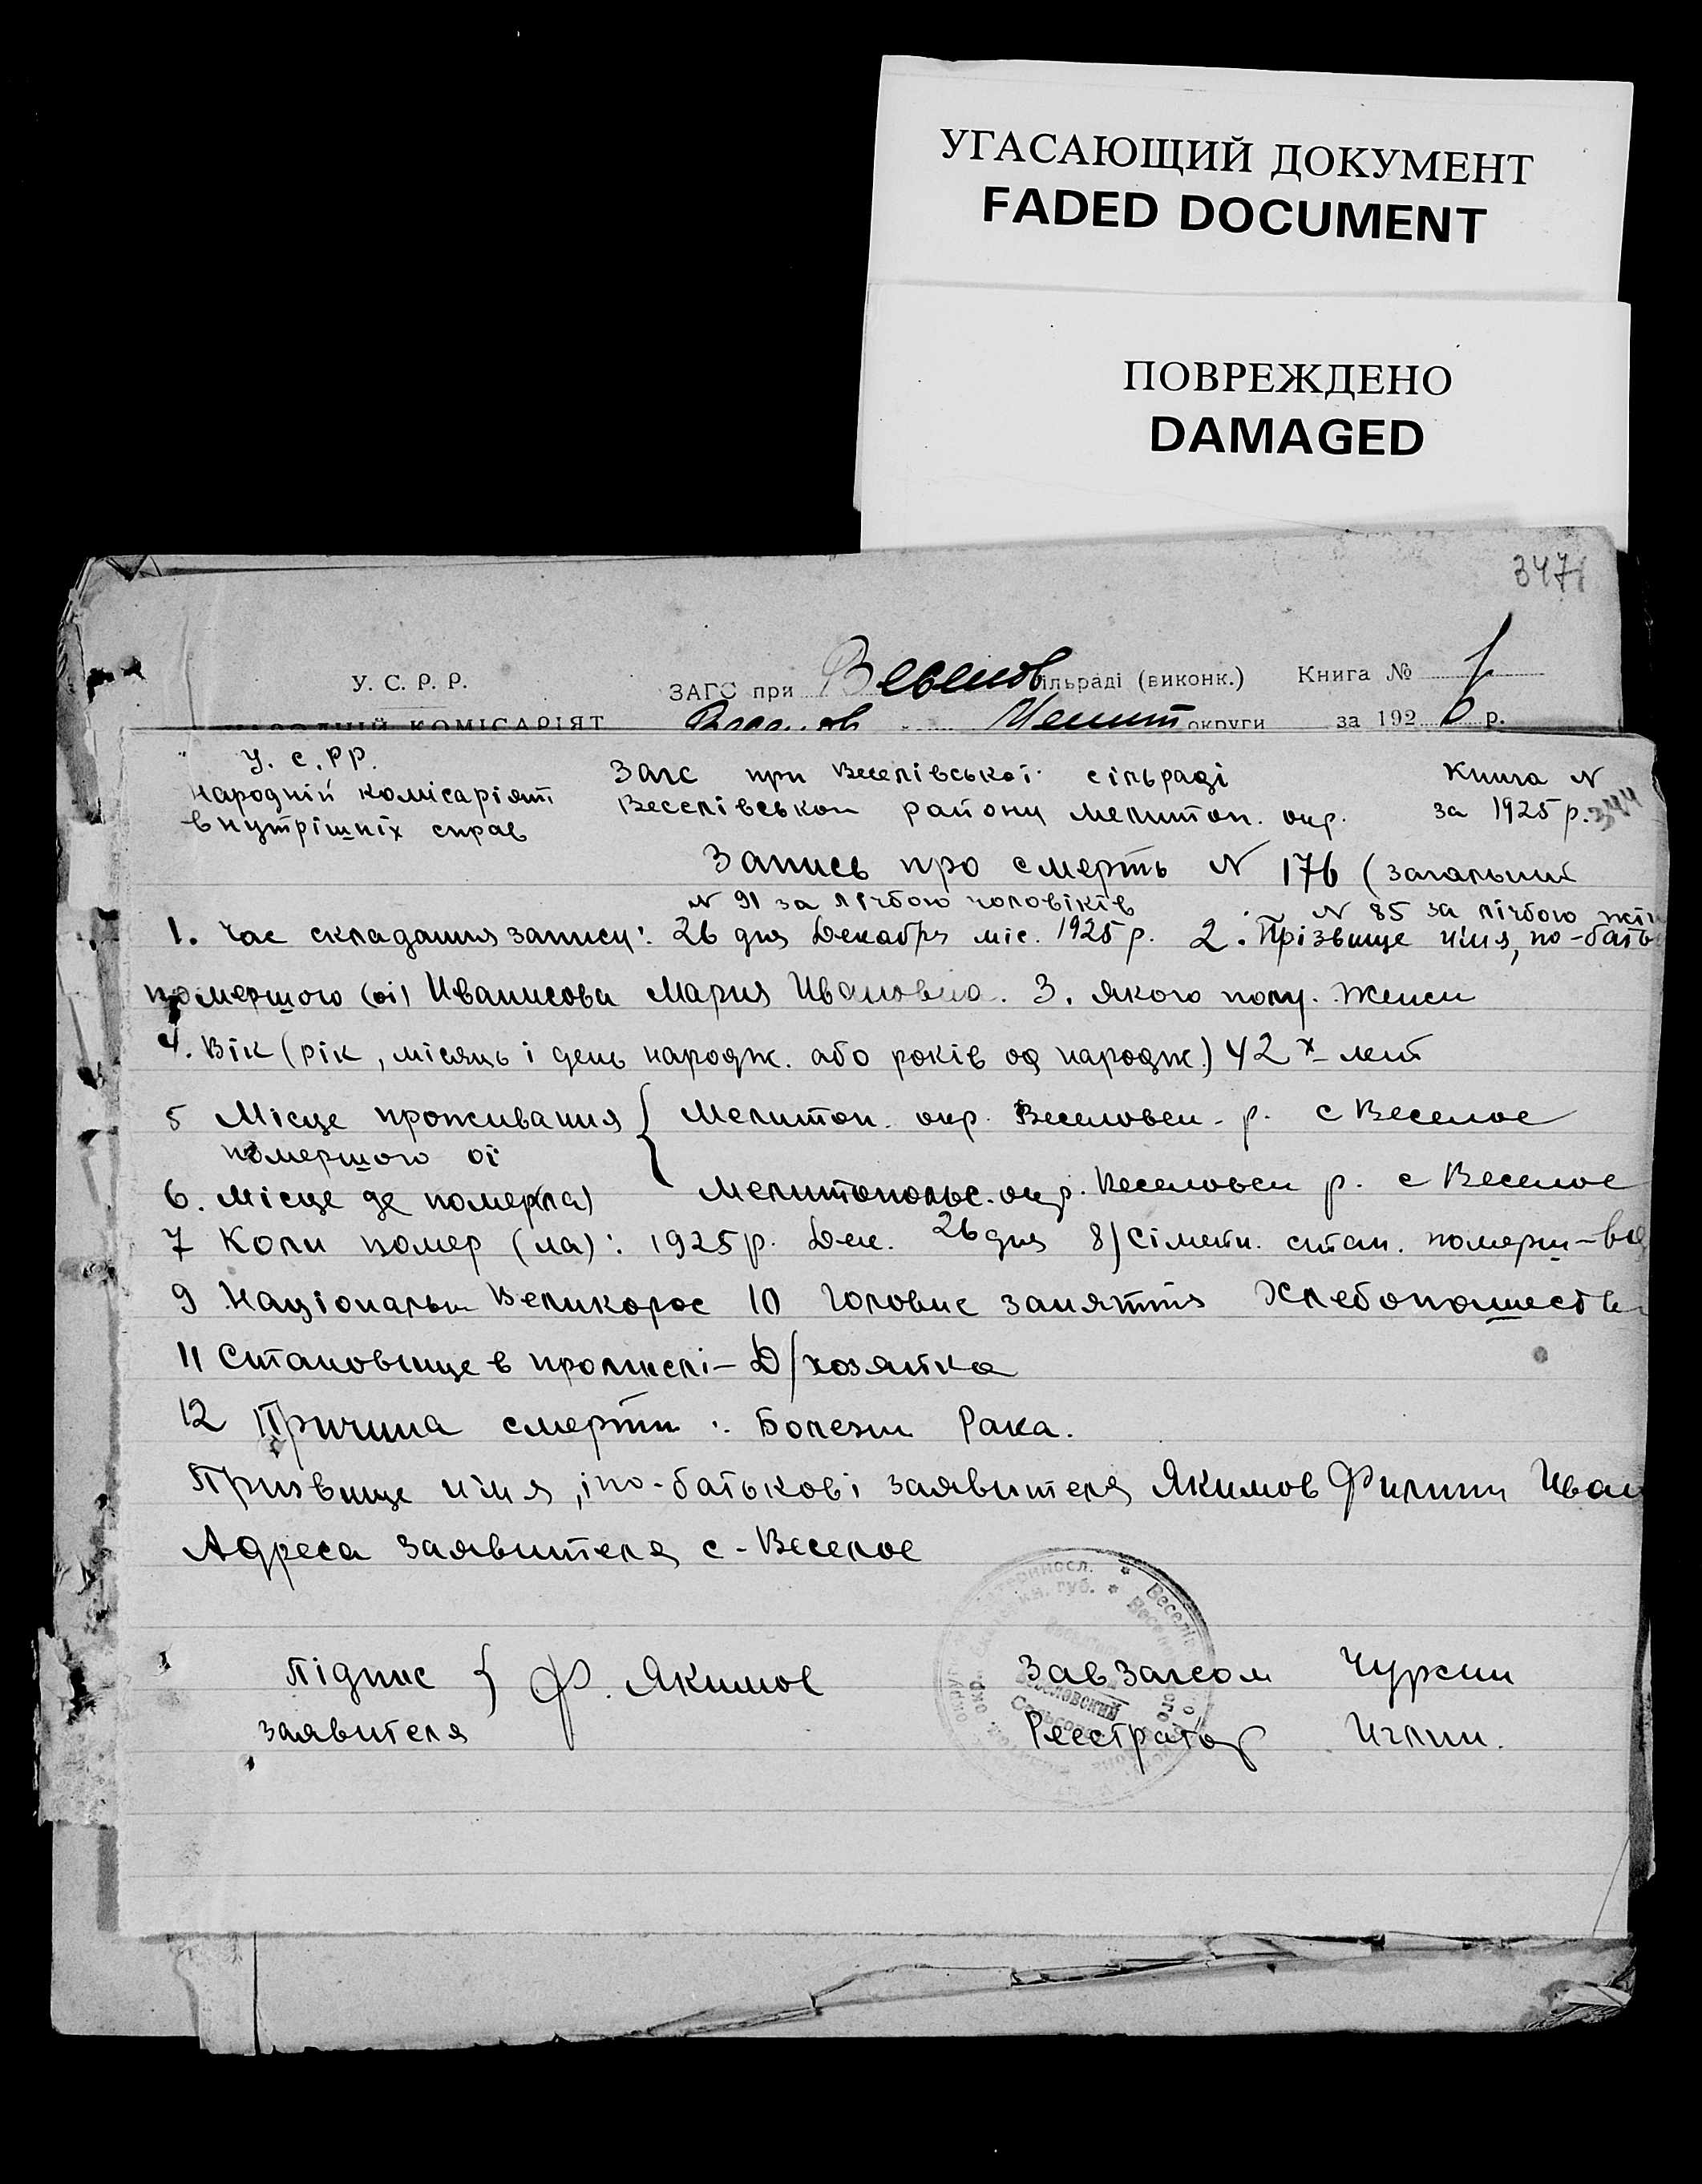 УГАСАЮЩИЙ ДОКУМЕНТ
FADED DOCUMENT
ПОВРЕЖДЕНО
DAMAGED
347
У. С. Р. Р.
ЗАГС при Веселов ільраді (виконк.) Книга № 1
КОМІСАРІЯТ Мелит округи за 192 6 р.
У. С. РР.
Народній комісаріят
внутрішніх справ
Загс при Веселівської сільраді
Веселівськои району Мелитоп. окр.
Книга N
за 1925 р. 344
Запись про смерть N 176 (загальний
N 91 за лічбою чоловіків N 85 за лічбою жін
1. Час складання запису: 26 дня Декабря міс. 1925 р. 2. Прізвище имя, по-бать
помершого (ої) Мария Ивановна. 3. якого полу. Женск
4. Вік (рік, місяць і день народж. або років од народж.) 42 х лет
5 Місце проживания { Мелитоп. окр. Веселовск. р. с Веселое
помершого ої
6. Місце де помер(ла) Мелитопольс. окр. Веселовск р. с Веселое
7 Коли помер (ла): 1925 р. Дек. 26 дня 8) Сімейн. стан. померш-
9 Національн Великорос 10 Головне заняття Хлебопашеств
11 Становище в промислі - Д/хозяйка
12 Причина смерти: Болезни Рака.
Призвище имя, і по-батькові заявителя Якимов Филипп Иван
Адреса заявителя с-Веселое
Підпис } Ф. Якимов
заявителя
Завзагсом Чурсин
Реестратор
Веселовский